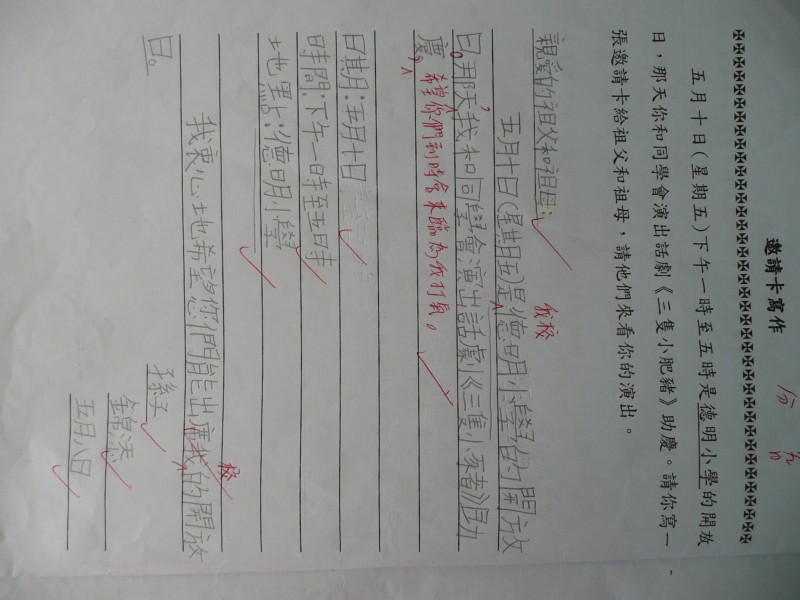 邀請卡寫作
五月十日(星期五)下午一時至五時是德明小學的開放
日，那天你和同學會演出話劇《三隻小肥豬》助慶。請你寫一
張邀請卡給祖父和祖母，請他們來看你的演出。
親愛的祖父和祖母：
我校
五月十日(星期五)是德明小學的開放
日。那天，我和同學會演出話劇《三隻小豬》助
慶。希望你們到時會來臨為我打氣。
日期：五月十日
時間：下午一時至五時
地點：德明小學
校
我衷心地希望你們能出席我的開放
日。
孫子
錦添
五月八日